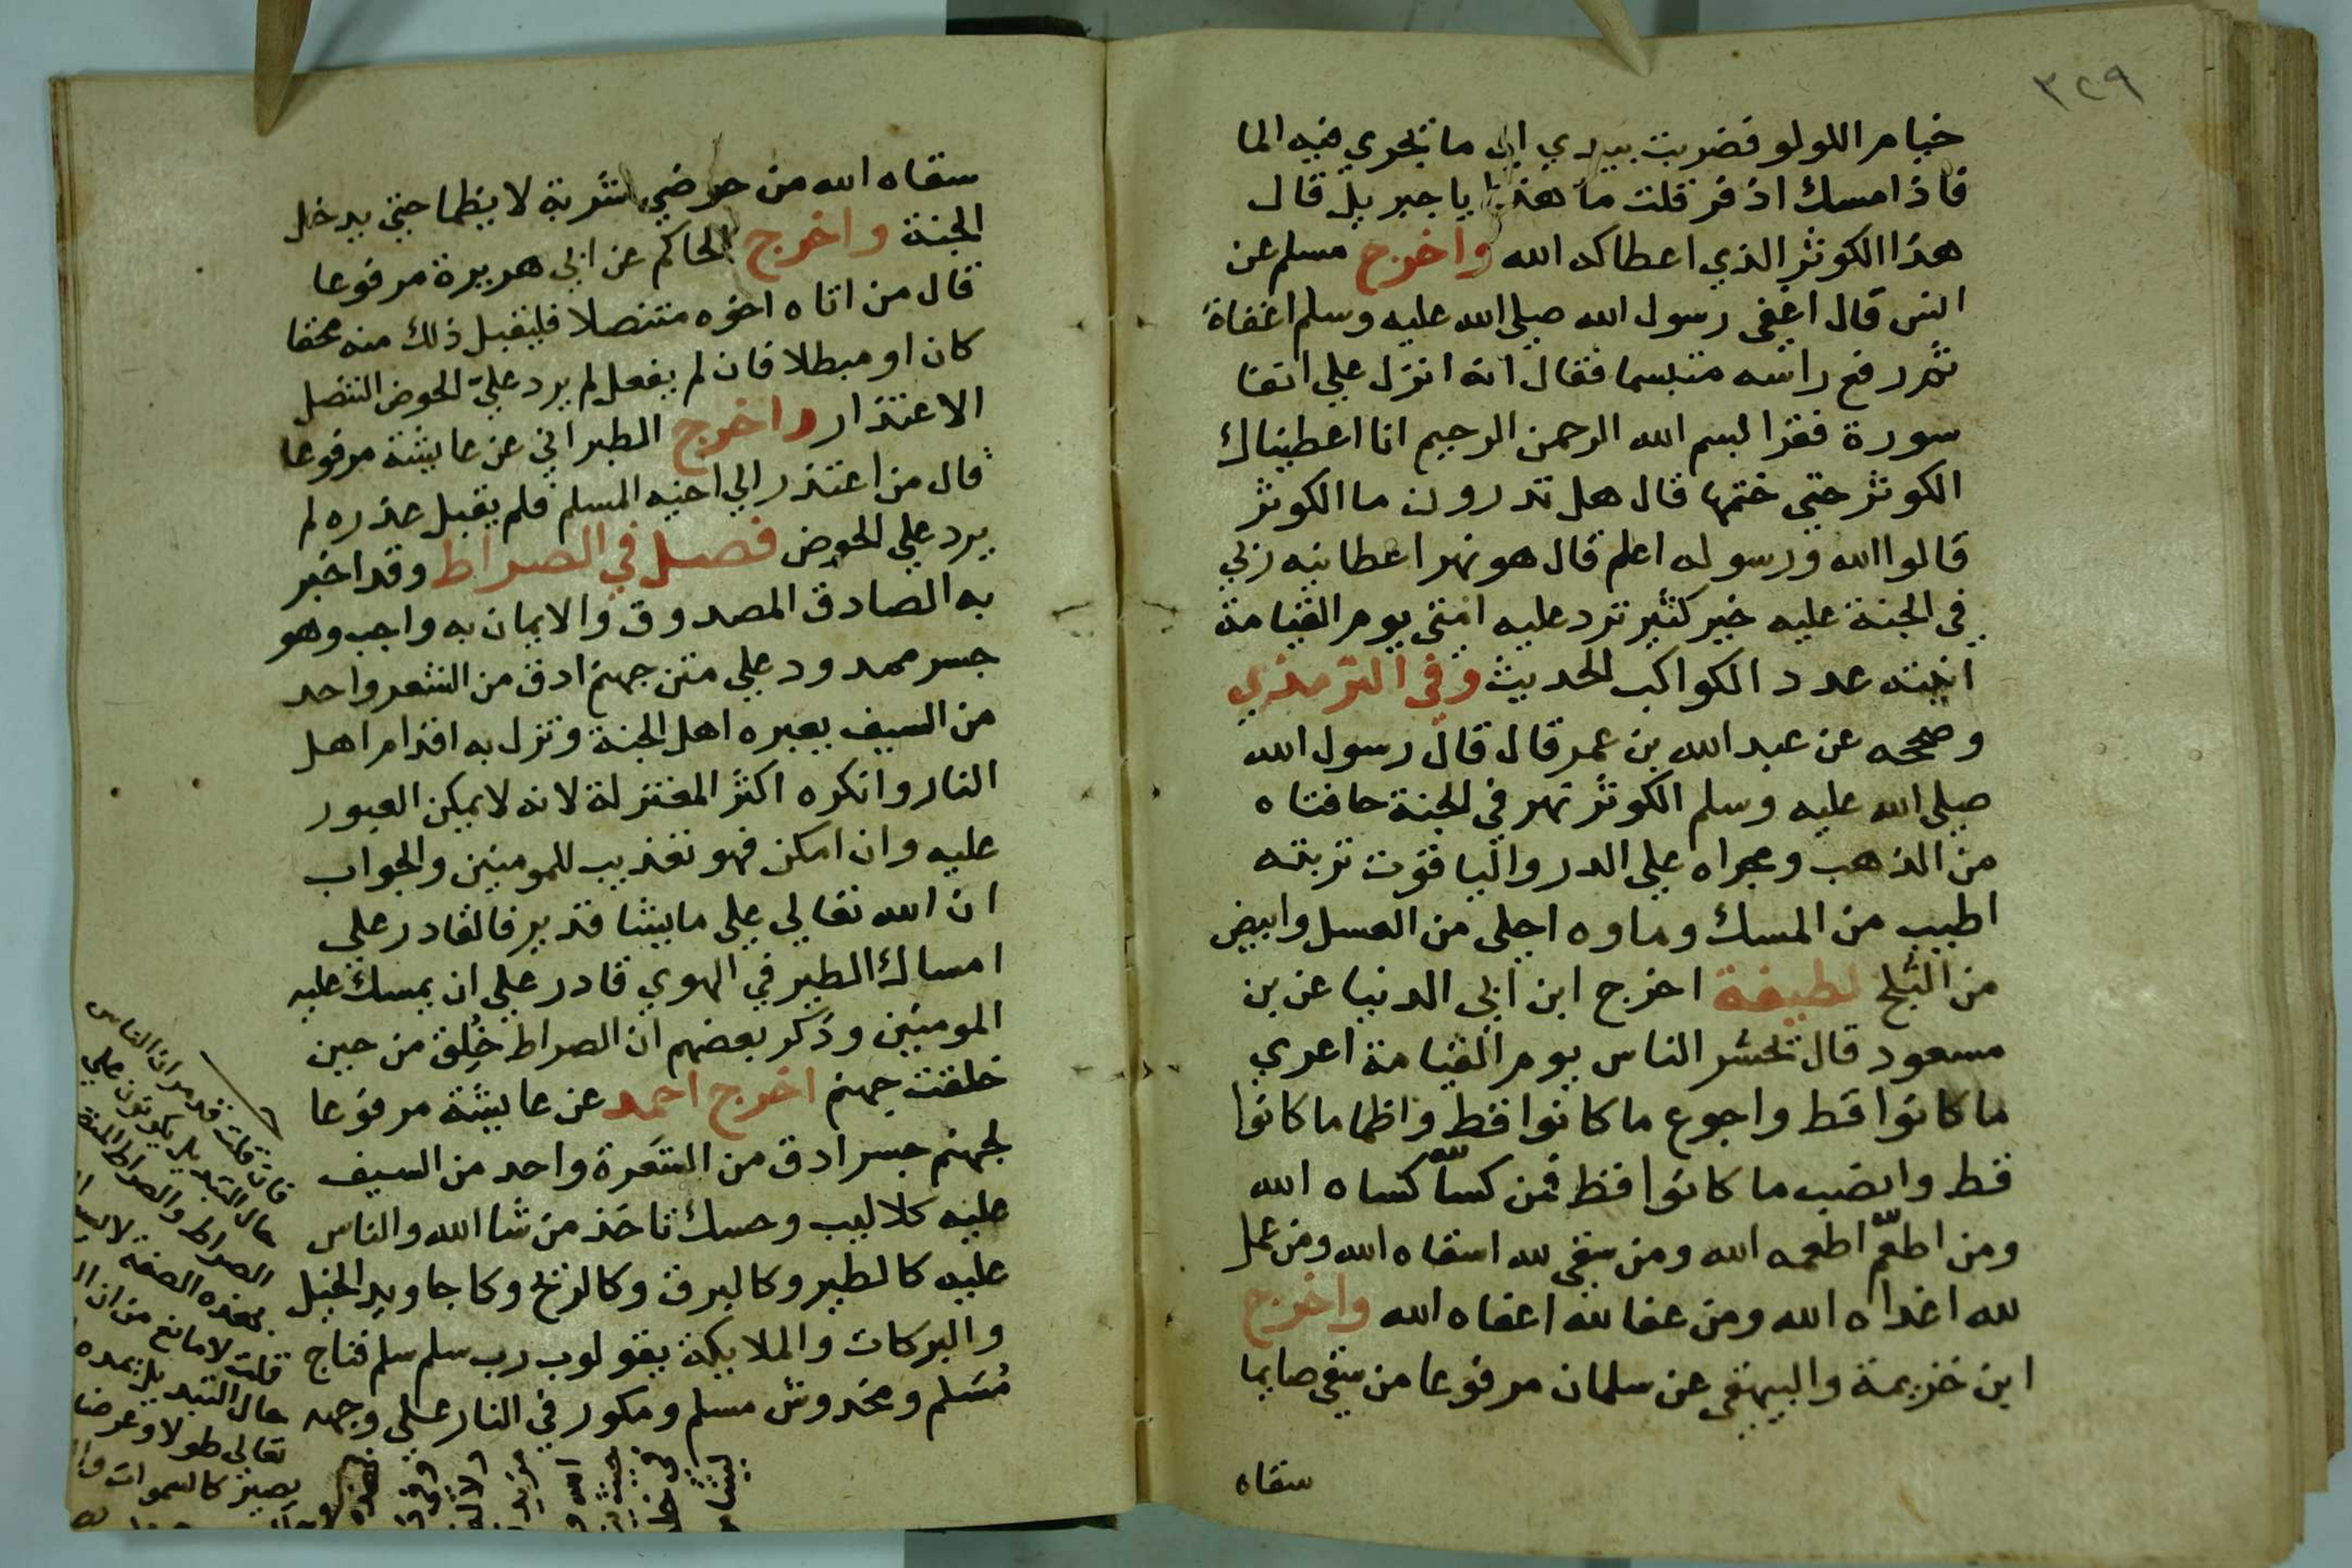 ٣٢٩
خيام اللولو فضربت بيدي الى ما تجري فيه الما
فاذا مسك اذفر قلت ما هذا يا جبريل قال
هذا الكوثر الذي اعطاكه الله واخرج مسلم عن
انس قال اغفى رسول الله صلى الله عليه وسلم اغفاة
ثم رفع راسه متبسما فقال انه انزل علي انفا
سورة فقرا بسم الله الرحمن الرحيم انا اعطيناك
الكوثر حتى ختمها قال هل تدرون ما الكوثر
قالوا الله ورسوله اعلم قال هو نهر اعطانيه ربي
في الجنة عليه خير كثير ترد عليه امتي يوم القيامة
انيته عدد الكواكب الحديث وفي الترمذي
وصححه عن عبد الله بن عمر قال قال رسول الله
صلى الله عليه وسلم الكوثر نهر في الجنة حافتاه
من الذهب ومجراه على الدر والياقوت تربته
اطيب من المسك وماوه احلى من العسل وابيض
من الثلج لطيفة اخرج ابن ابي الدنيا عن بن
مسعود قال تحشر الناس يوم القيامة اعري
ما كانوا قط واجوع ما كانوا قط واظما ما كانوا
قط وانصب ما كانوا قط فمن كسا لله كساه الله
ومن اطعم لله اطعمه الله ومن سقى لله اسقاه الله ومن عمل
لله اغداه الله ومن عفا لله اعفاه الله واخرج
ابن خزيمة والبيهقي عن سلمان مرفوعا من سقى صايما
سقاه
سقاه الله من حوضي شربة لا يظما حتى يدخل
الجنة واخرج الحاكم عن ابي هريرة مرفوعا
قال من اتاه اخوه متنصلا فليقبل ذلك منه محقا
كان او مبطلا فان لم يفعل لم يرد علي الحوض التنصل
الاعتذار واخرج الطبراني عن عايشة مرفوعا
قال من اعتذر الى اخيه المسلم فلم يقبل عذره لم
يرد علي الحوض فصل في الصراط وقد اخبر
به الصادق المصدوق والايمان به واجب وهو
جسر ممدود على متن جهنم ادق من الشعر واحد
من السيف يعبره اهل الجنة وتزل به اقدام اهل
النار وانكره اكثر المعتزلة لانه لا يمكن العبور
عليه وان امكن فهو تعذيب للمومنين والجواب
ان الله تعالى على ما يشا قدير فالقادر على
امساك الطير في الهوي قادر على ان يمسك عليه
المومنين وذكر بعضهم ان الصراط خُلِق من حين
خلقت جهنم اخرج احمد عن عايشة مرفوعا
لجهنم جسر ادق من الشعرة واحد من السيف
عليه كلاليب وحسك تاخذ من شا الله والناس
عليه كالطير وكالبرق وكالريح وكاجاويد الخيل
والبركات والملايكة يقولون رب سلم سلم فناج
مُسَلم ومخدوش مسلم ومكور في النار على وجهه
فان قلت قد مر ان الناس
حال التبديل يكونون على
الصراط والصراط
بهذه الصفة لا
قلت لا مانع من ان
حال التبديل يمده
تعالى طولا وعرضا
يصير كالسموات